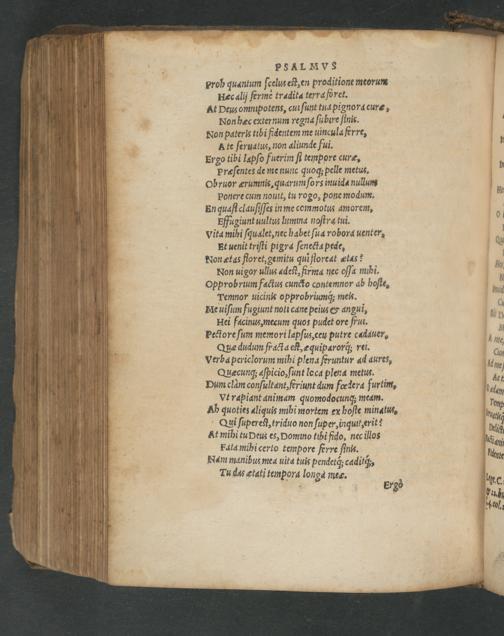 PSALMVS
Proh quantum scelus est, en proditione meorum
Hæc alij fermè tradita terra foret.
At Deus omnipotens, cui sunt tua pignora curæ,
Non hæc externum regna subire sinis.
Non pateris tibi fidentem me uincula ferre,
A te seruatus, non aliunde fui.
Ergo tibi lapso fuerim si tempore curæ,
Præsentes de me nunc quoq; pelle metus.
Obruor ærumnis, quarum sors inuida nullum
Ponere cum nouit, tu rogo, pone modum.
En quasi clausisses in me commotus amorem,
Effugiunt uultus lumina nostra tui.
Vita mihi squalet, nec habet sua robora uenter,
Et uenit tristi pigra senecta pede,
Non ætas floret, gemitu qui floreat ætas?
Non uigor ullus adest, firma nec ossa mihi.
Opprobrium factus cuncto contemnor ab hoste,
Temnor uicinis opprobriumq́; meis.
Me uisum fugiunt noti cane peius & angui,
Hei facinus, mecum quos pudet ore frui.
Pectore sum memori lapsus, ceu putre cadauer,
Quæ dudum fracta est, æquipararq́; rei.
Verba periclorum mihi plena feruntur ad aures,
Quæcunq; aspicio, sunt loca plena metus.
Dum clàm consultant, feriunt dum fœdera furtim,
Vt rapiant animam quomodocunq; meam.
Ah quoties aliquis mihi mortem ex hoste minatus,
Qui superest, triduo non super, inquit, erit?
At mihi tu Deus es, Domino tibi fido, nec illos
Fata mihi certo tempore ferre sinis.
Nam manibus mea uita tuis pendetq́; caditq́;,
Tu das ætati tempora longa meæ.
Ergò